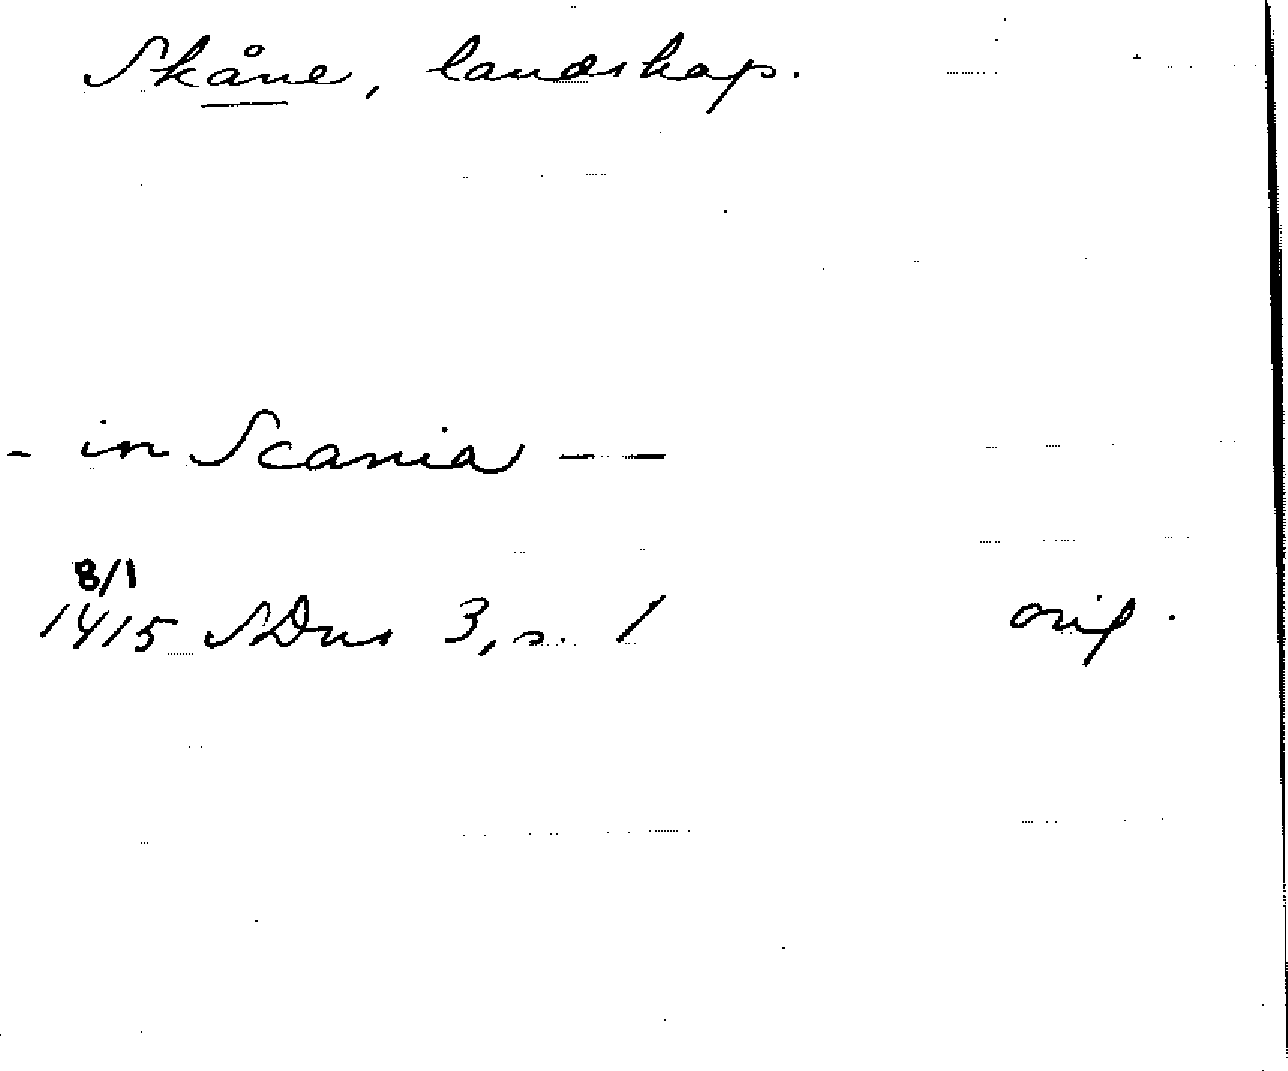 Skåne, landskap.
- in Scania —
8/1
1415 SDns 3, s. 1 orig.